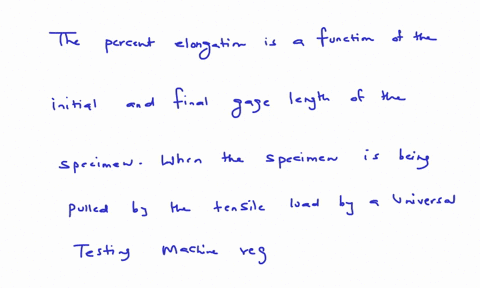 The percent elongation is a function of the
initial and final gage length of the
specimen. When the specimen is being
pulled by the tensile load by a Universal
Testing Machine reg